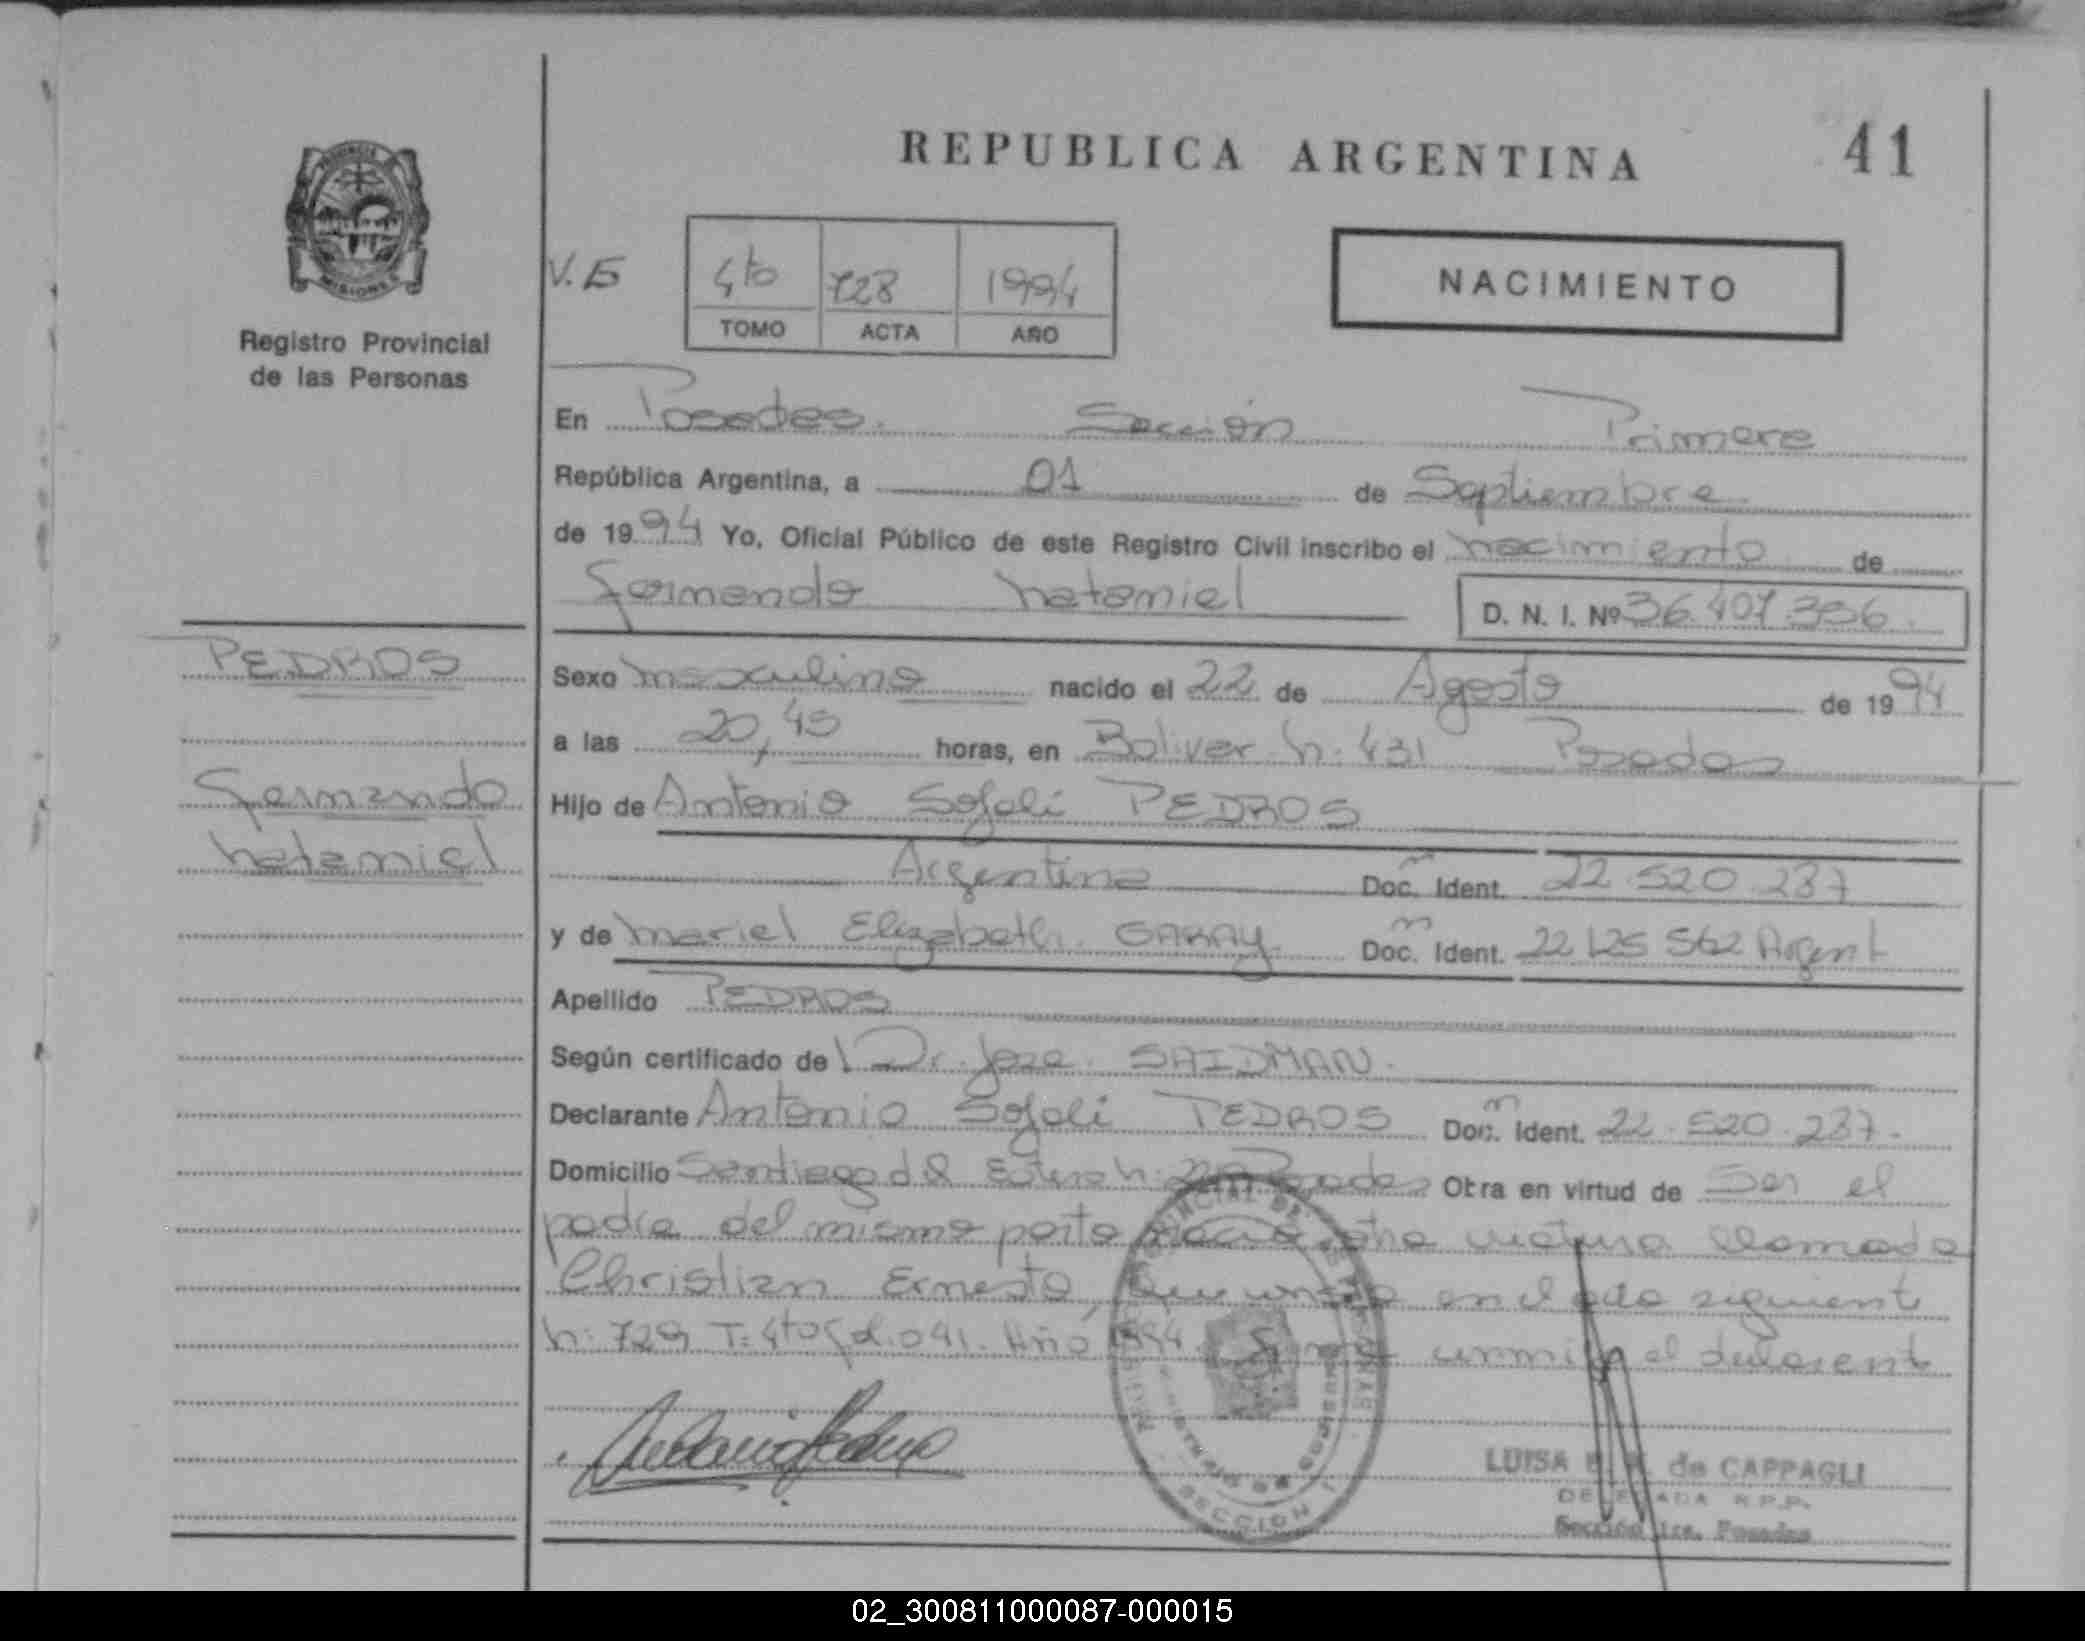 REPUBLICA ARGENTINA
41
PROVINCIA DE
MISIONES
Registro Provincial
de las Personas
V. E
4to 728 1994
TOMO ACTA AÑO
NACIMIENTO
En Posadas. Sección Primera
República Argentina, a 01 de Septiembre
de 1994 Yo, Oficial Público de este Registro Civil inscribo el nacimiento de
Fernando Nataniel
D. N. I. Nº 36.407.356.
PEDROS
Fernando
Nataniel
Sexo masculino nacido el 22 de Agosto de 1994
a las 20,45 horas, en Bolivar N: 431 Posadas
Hijo de Antonio PEDROS
Argentino Doc. Ident. 22.520.237
y de Mariel Elizabeth GARAY. Doc. Ident. 22 125 562 Argent
Apellido PEDROS
Según certificado de Dr. Jose SAIDMAN.
Declarante Antonio PEDROS Doc. Ident. 22.520.237.
Domicilio Santiago d Estero N: Posadas Otra en virtud de Ser el
padre del mismo parto otra llamada
Christian Ernesto, en el acta siguiente
N: 729 T: 4to fol. 041. Año 1994. el
LUISA de CAPPAGLI
DELEGADA R.P.P.
Sección 1ra. Posadas
SECCION 1
02_300811000087-000015